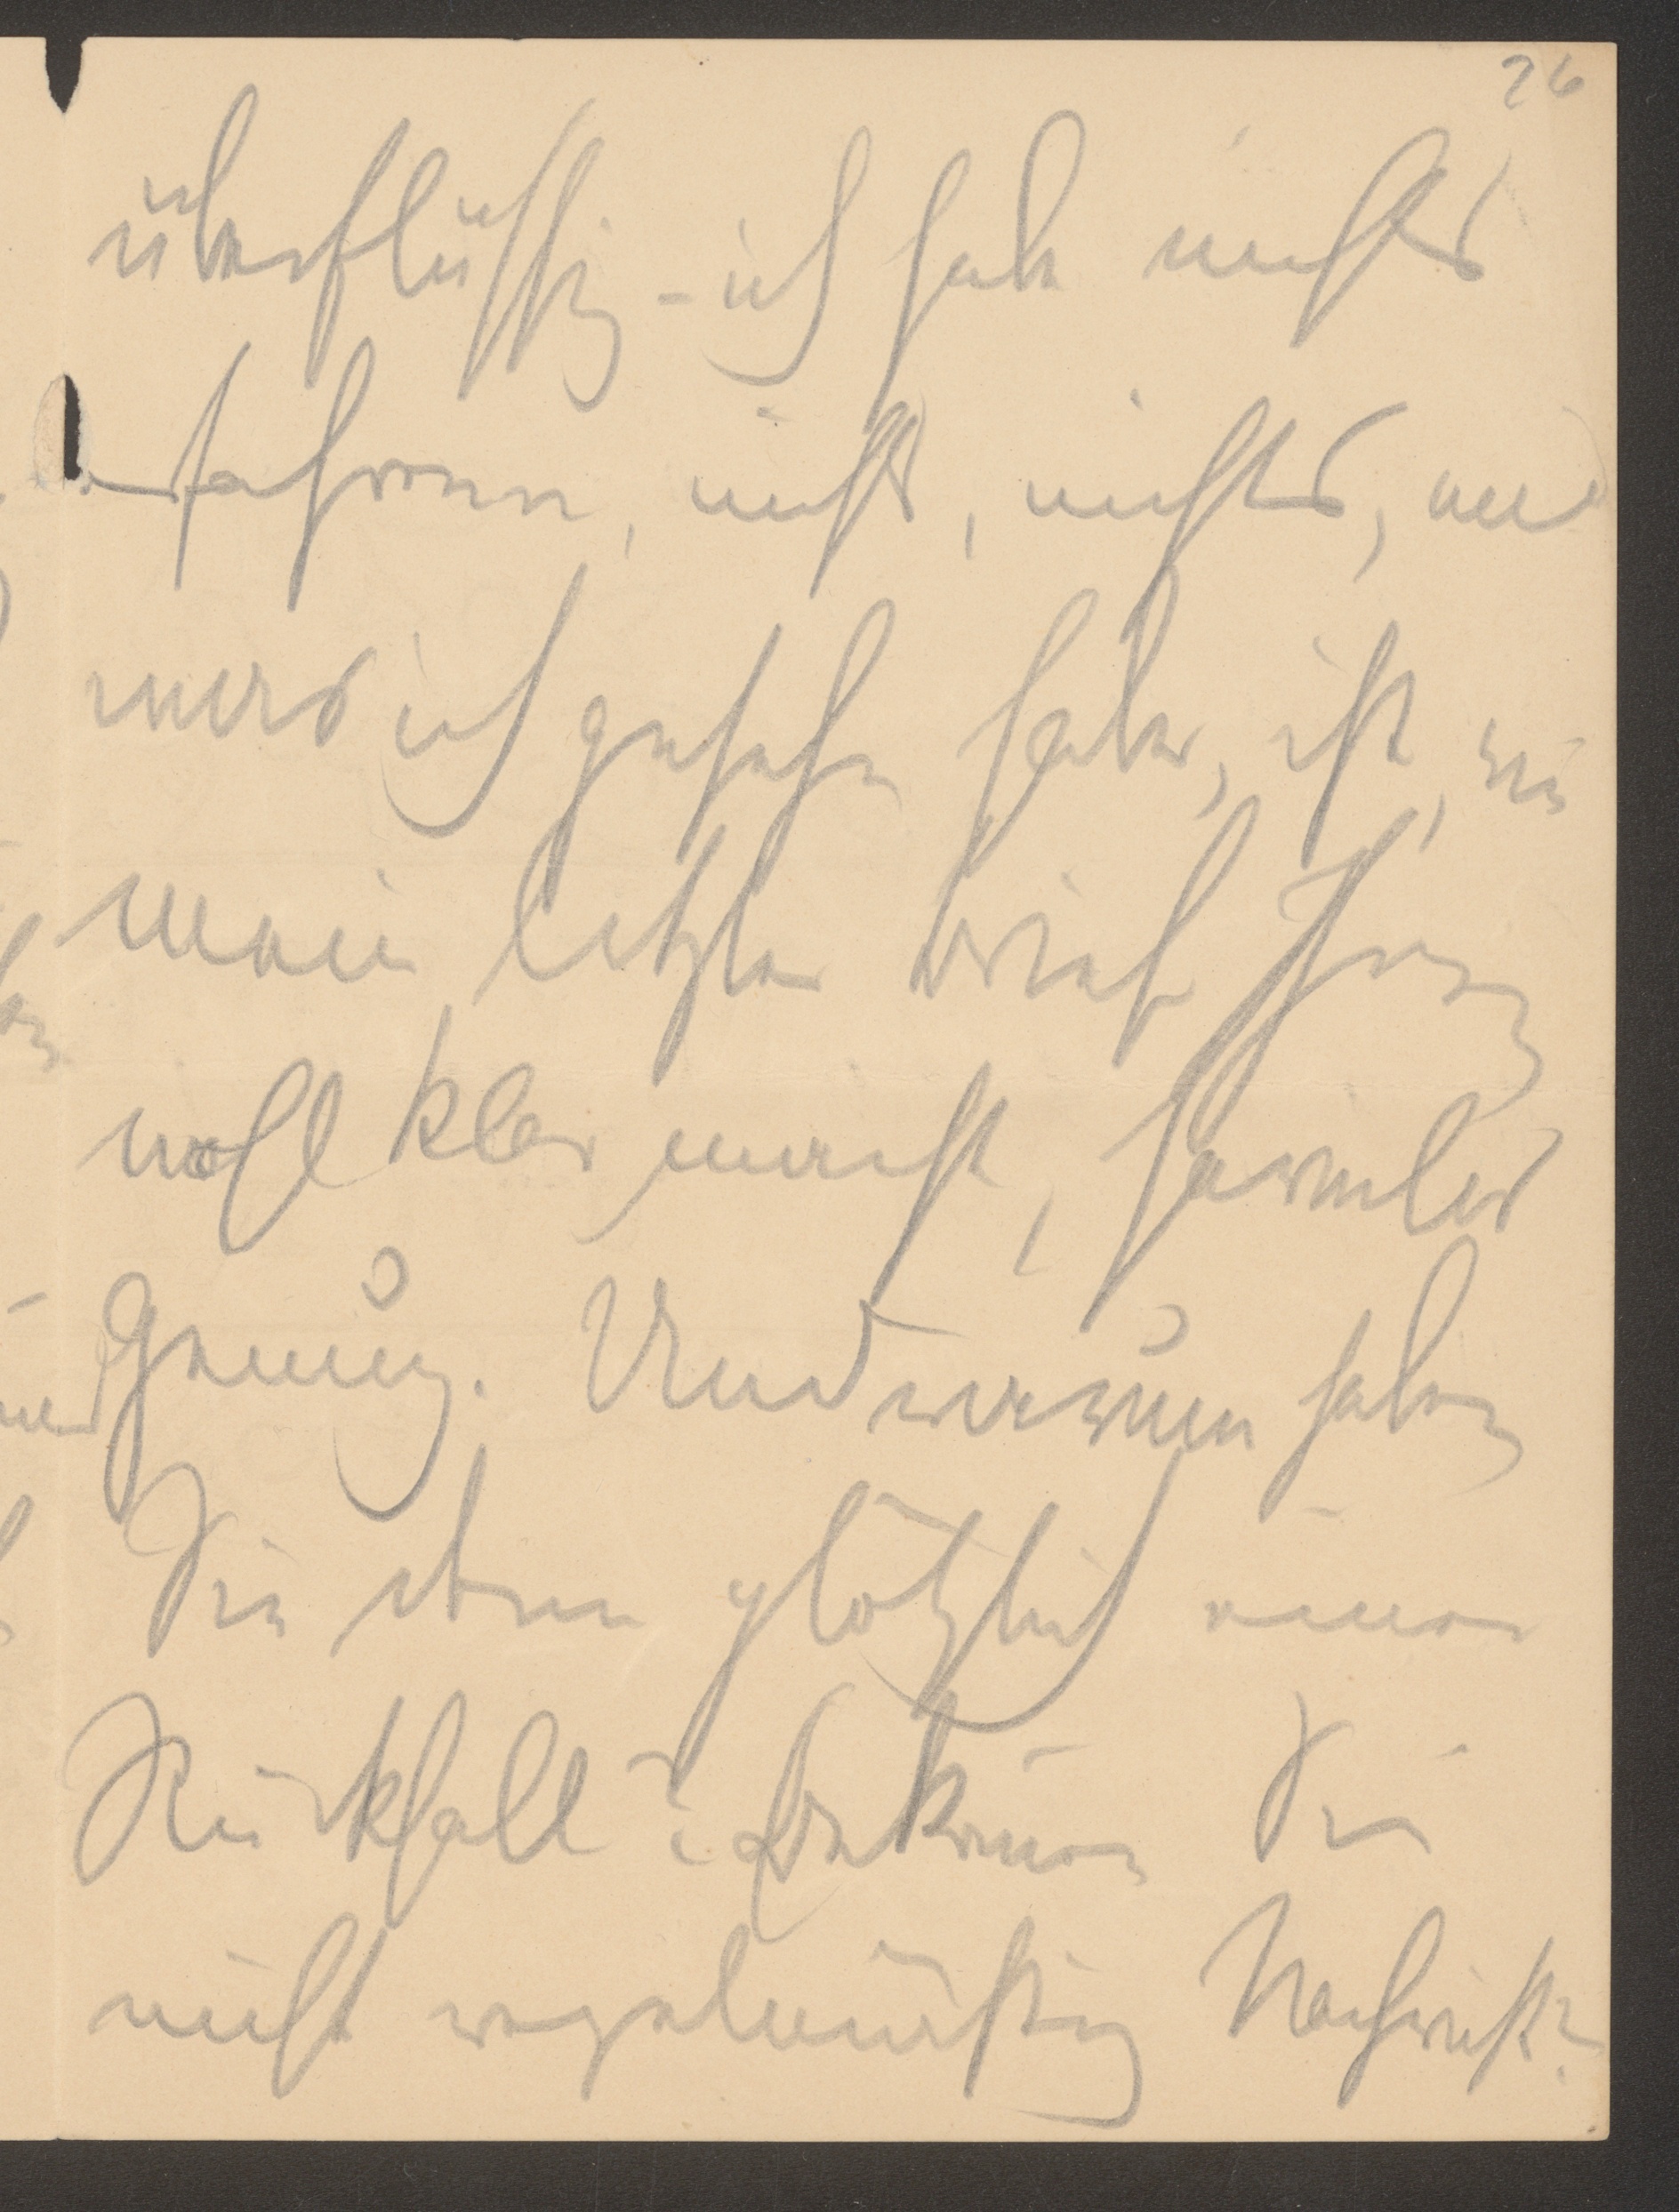 26
überflüssig – ich habe nichts
erfahren, nichts, nichts, und
was ich gesehen habe, ist, wie
mein letzter Brief Ihnen
wohl klar macht, harmlos
genug. Und warum haben
Sie eben plötzlich einen
Rückfall? Bekommen Sie
nicht regelmäßig Nachricht?